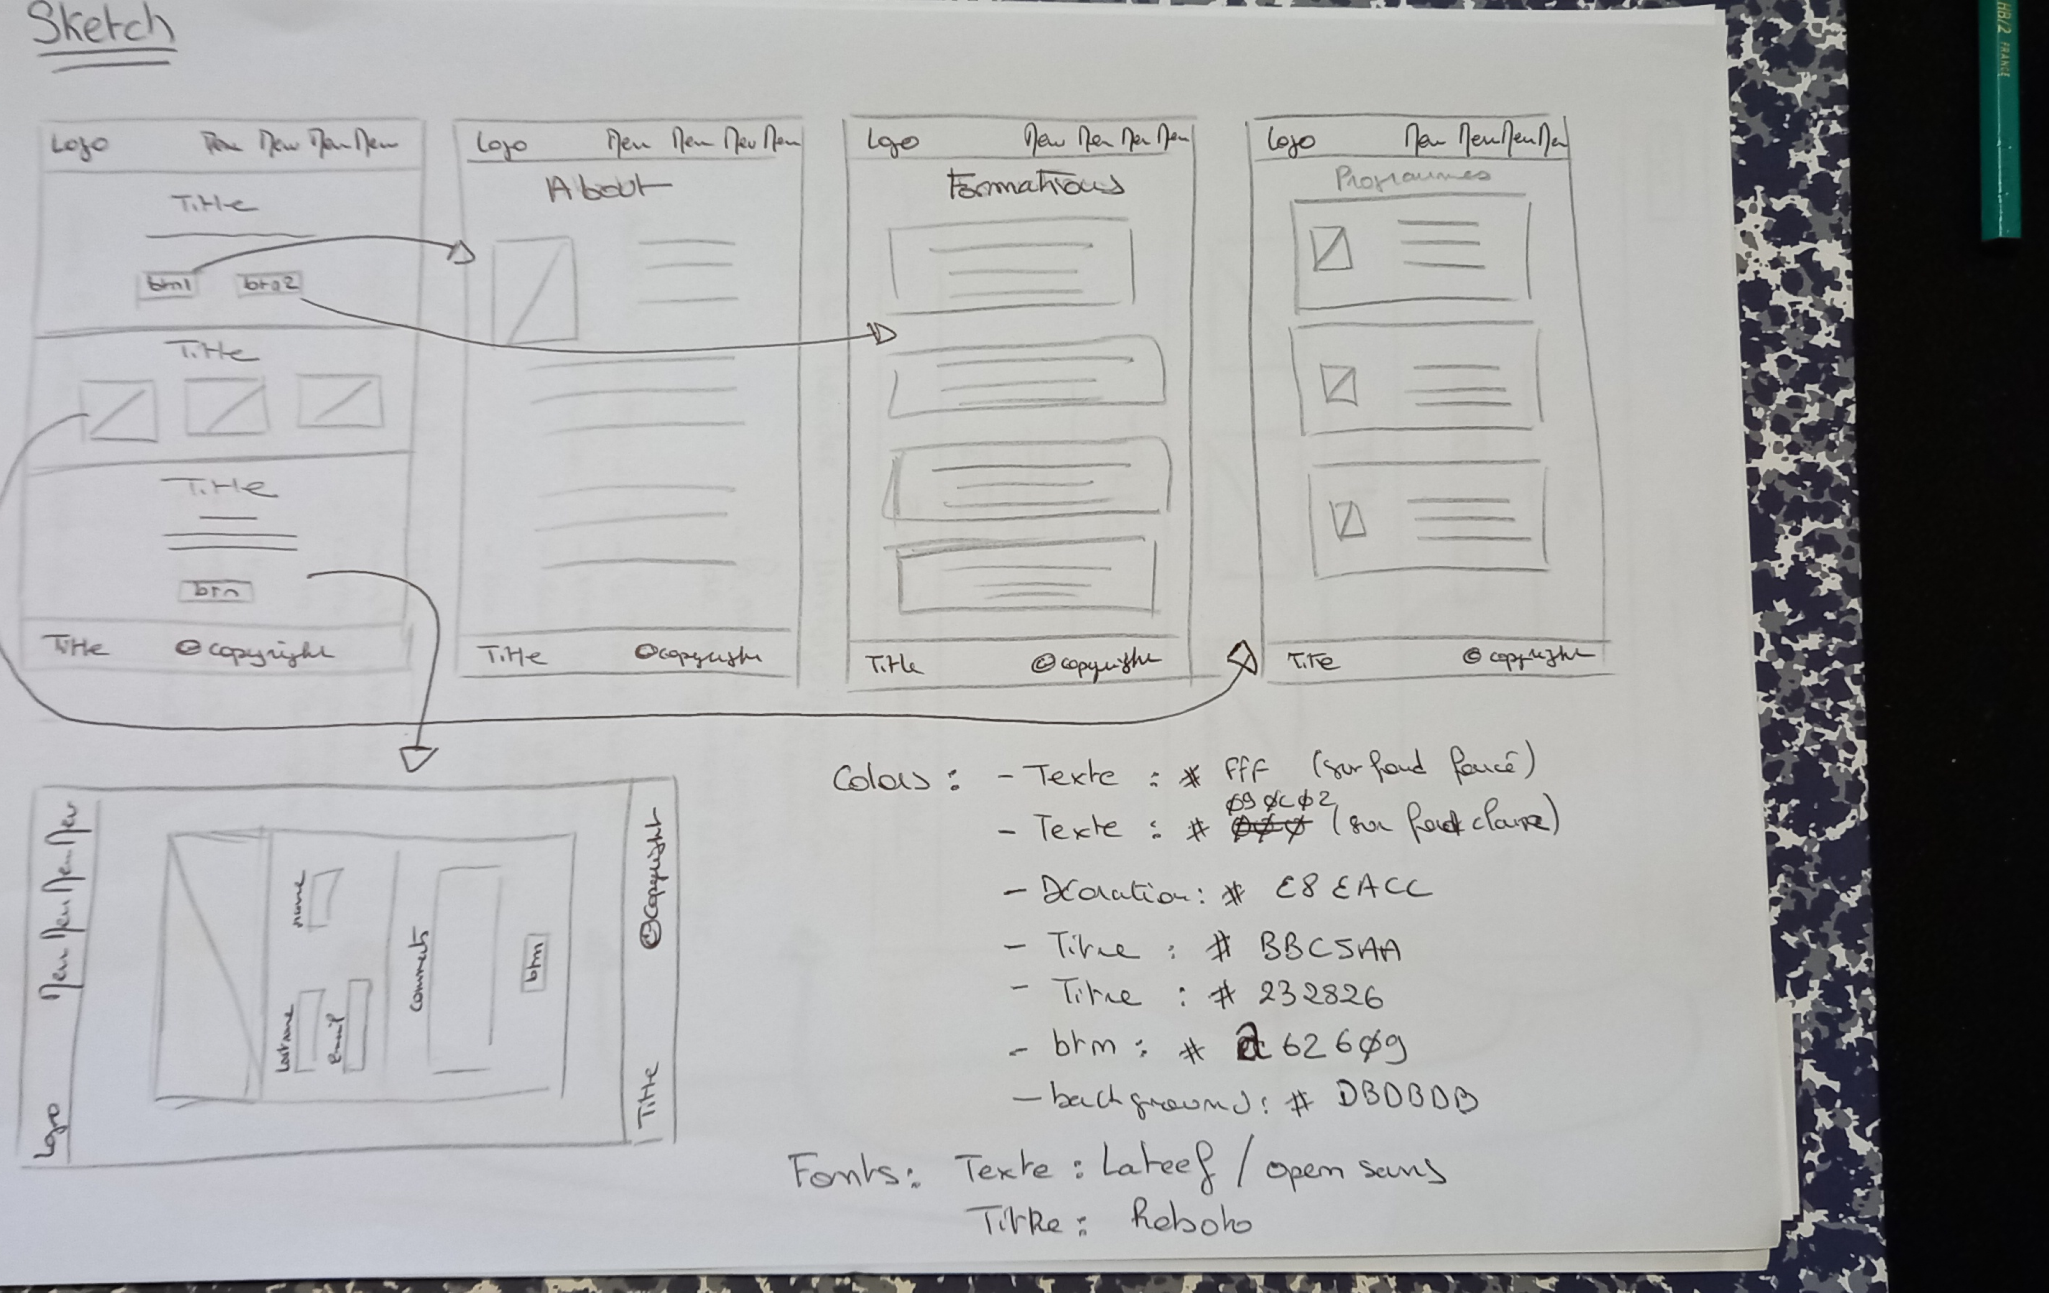 Sketch
Logo Menu Menu Menu Menu
Title
btn1 btn2
Title
Title
btn
Title ©copyright
Logo Menu Menu Menu Menu
About
Title ©copyright
Logo Menu Menu Menu Menu
Formations
Title ©copyright
Logo Menu Menu Menu Menu
Programmes
Title ©copyright
Logo Menu Menu Menu Menu
Lastname name
email
comments
btn
Title ©copyright
Colors : - Texte : # fff (sur fond foncé)
- Texte : # 090C02 (sur fond claire)
- Décoration : # E8EACC
- Titre : # BBC5AA
- Titre : # 232826
- btn : # a62609
- background : # DBDBDB
Fonts : Texte : Lateef / open sans
Titre : Roboto
HB/2 FRANCE